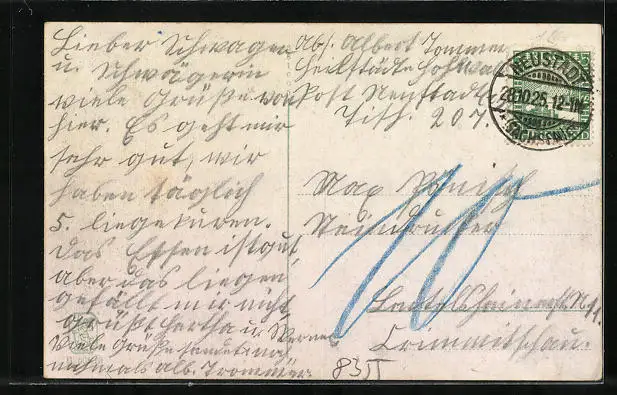 Lieber Schwager
u. Schwägerin
viele Grüße von
hier. Es geht mir
sehr gut, wir
haben täglich
5. liegekuren.
Das Essen ist gut
aber das liegen
gefällt mir nicht
grüßt Hertha u. Werner
Viele Grüße sendet euch
nochmals Alb. Trommer.
Abs. Albert Trommer
Heilstätte Hohwald
Post Neustadt
Tisch. 207.
NEUSTADT
28.10.25. 12-1N.
(SACHSEN)
Max
Steindrucker
No 11.
Crimmitschau.
8355